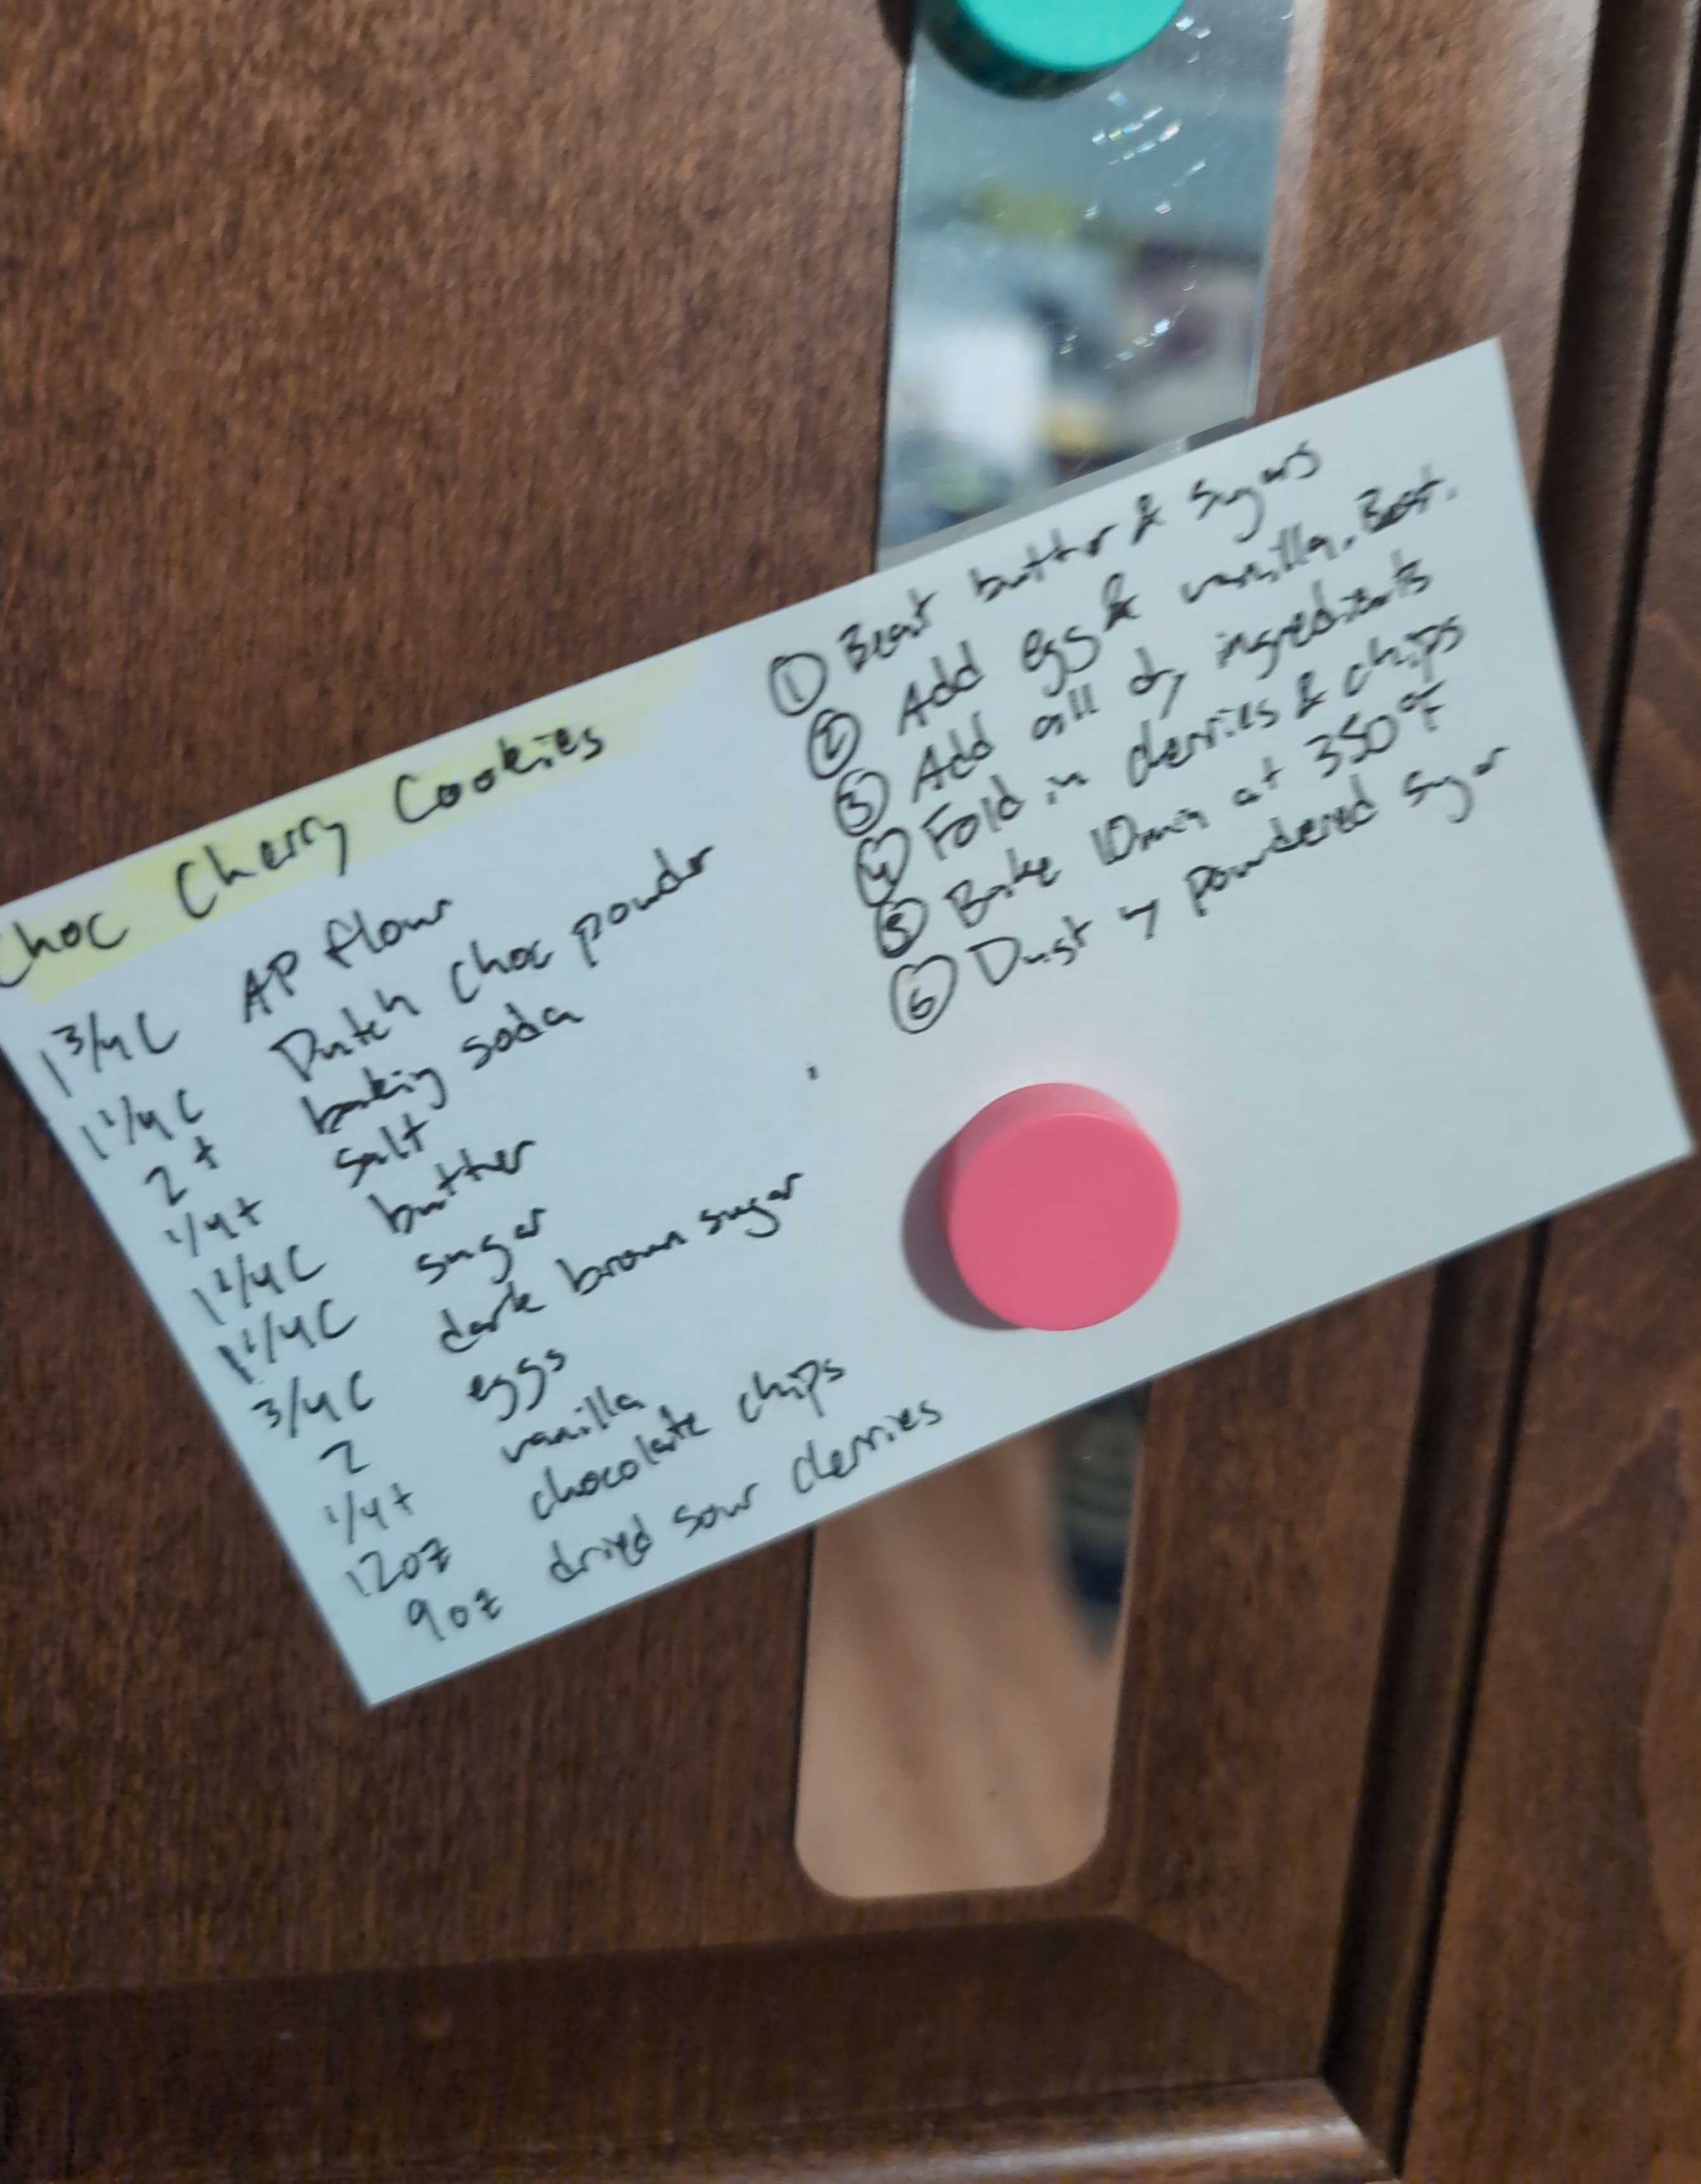 Choc Cherry Cookies
1 3/4 C AP flour
1 1/4 C Dutch Choc powder
2 t baking soda
1/4 t salt
1 1/4 C butter
1 1/4 C sugar
3/4 C dark brown sugar
2 eggs
1/4 t vanilla
12 oz chocolate chips
9 oz dried sour cherries
① Beat butter & sugars
② Add egg & vanilla. Beat.
③ Add all dry ingredients
④ Fold in cherries & chips
⑤ Bake 10 min at 350°F
⑥ Dust w/ powdered sugar